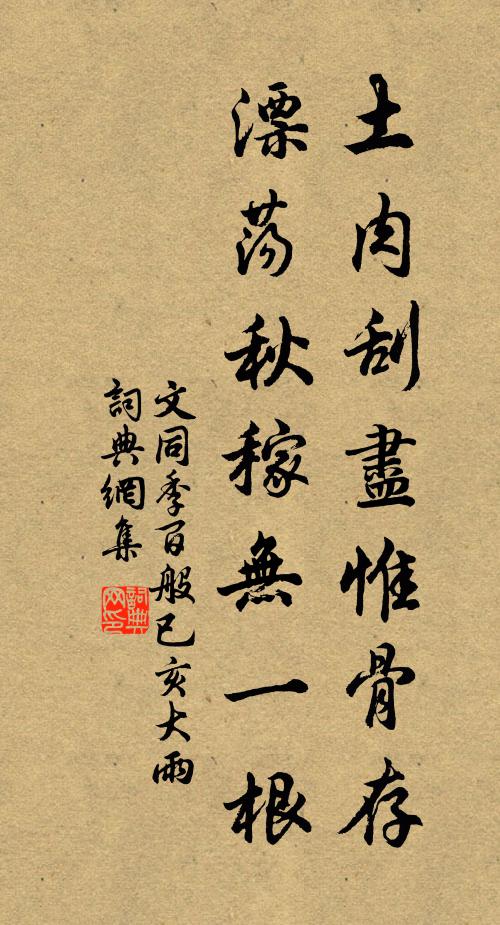 土肉刮盡惟骨存
漂荡秋稼無一根
文同季百般已亥大雨
詞典網集
詞典網印